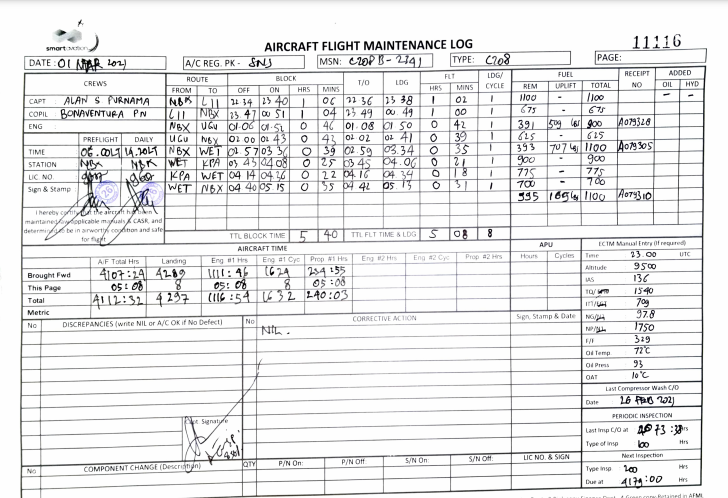 smart aviation
AIRCRAFT FLIGHT MAINTENANCE LOG
11116
DATE: 01 MAR 2021 A/C REG. PK - SNJ MSN: C208B-2741 TYPE: C208 PAGE:
CREWS ROUTE BLOCK T/O LDG FLT LDG/CYCLE FUEL RECEIPT NO ADDED
FROM TO OFF ON HRS MINS HRS MINS REM UPLIFT TOTAL OIL HYD
CAPT : ALAN S PURNAMA NBX LII 22 34 23 40 1 06 22 36 23 38 1 02 1 1100 - 1100
COPIL : BONAVENTURA PN LII NBX 23 47 00 51 1 04 23 49 00 49 1 00 1 675 - 675
ENG : NBX UGU 01.06 01.52 0 46 01.08 01 50 0 42 1 391 509 900 A079328
PREFLIGHT DAILY UGU NBX 02 00 02 43 0 43 02 02 02 41 0 39 1 625 - 625
TIME NBX WET 02 57 03 36 0 39 02 59 03.34 0 35 1 393 707 1100 A079305
STATION NBX NBX WET KPA 03 43 04 08 0 25 03 45 04.06 0 21 1 900 - 900
LIC NO. KPA WET 04 14 04.36 0 22 04 16 04 34 0 18 1 775 - 775
Sign & Stamp WET NBX 04 40 05.15 0 35 04 42 05 13 0 31 1 700 - 700
1100 A079310
I hereby certify that the aircraft has been
maintained iaw applicable manuals & CASR, and
determined to be in airworthy condition and safe
for flight
TTL BLOCK TIME 5 40 TTL FLT TIME & LDG 5 08 8
AIRCRAFT TIME APU ECTM Manual Entry (If required)
A/F Total Hrs Landing Eng #1 Hrs Eng #1 Cyc Prop #1 Hrs Eng #2 Hrs Eng #2 Cyc Prop #2 Hrs Hours Cycles Time 23.00 UTC
Brought Fwd 4107:24 4289 1111:46 1624 234:55 Altitude 9500
This Page 05:08 8 05:08 8 05:08 IAS 136
Total 4112:32 4297 1116:54 1632 240:03 TQ/ 1540
Metric ITT/ 709
No DISCREPANCIES (write NIL or A/C OK if No Defect) No CORRECTIVE ACTION Sign, Stamp & Date NG/ 97.8
NIL. NP/ 1750
F/F 329
Oil Temp 72°C
Oil Press 93
OAT 10°C
Last Compressor Wash C/O
Date 26 FEB 2021
PERIODIC INSPECTION
Capt Signature
Last Insp C/O at Hrs
Type of Insp 100 Hrs
Next Inspection
No COMPONENT CHANGE (Description) QTY P/N On: P/N Off: S/N On: S/N Off: LIC NO. & SIGN
Type Insp 200 Hrs
Due at 4179:00 Hrs